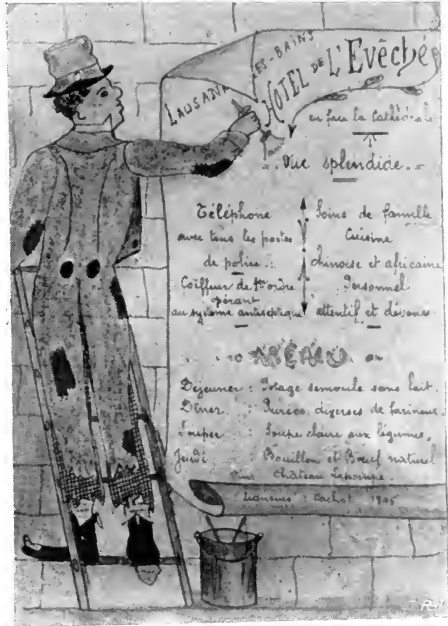 LAUSANNE-LES-BAINS
HOTEL DE L'Evêché
en face la Cathédrale
Vue splendide.
Téléphone
avec tous les postes
de police.
Coiffeur de 1er ordre
opérant
au système antiseptique
Soins de famille
Cuisine
chinoise et africaine
Personnel
attentif et dévoué
MENU
Déjeuner : Potage semoule sans lait.
Dîner : Purées diverses de farineux.
Souper : Soupe claire aux légumes.
Jeudi : Bouillon et Bœuf naturel
Château
Liqueurs : Cachot 1905